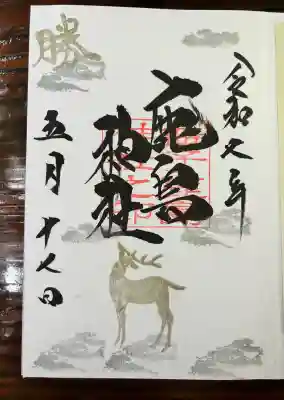 令和年
鹿島
神社
勝
五月十八日